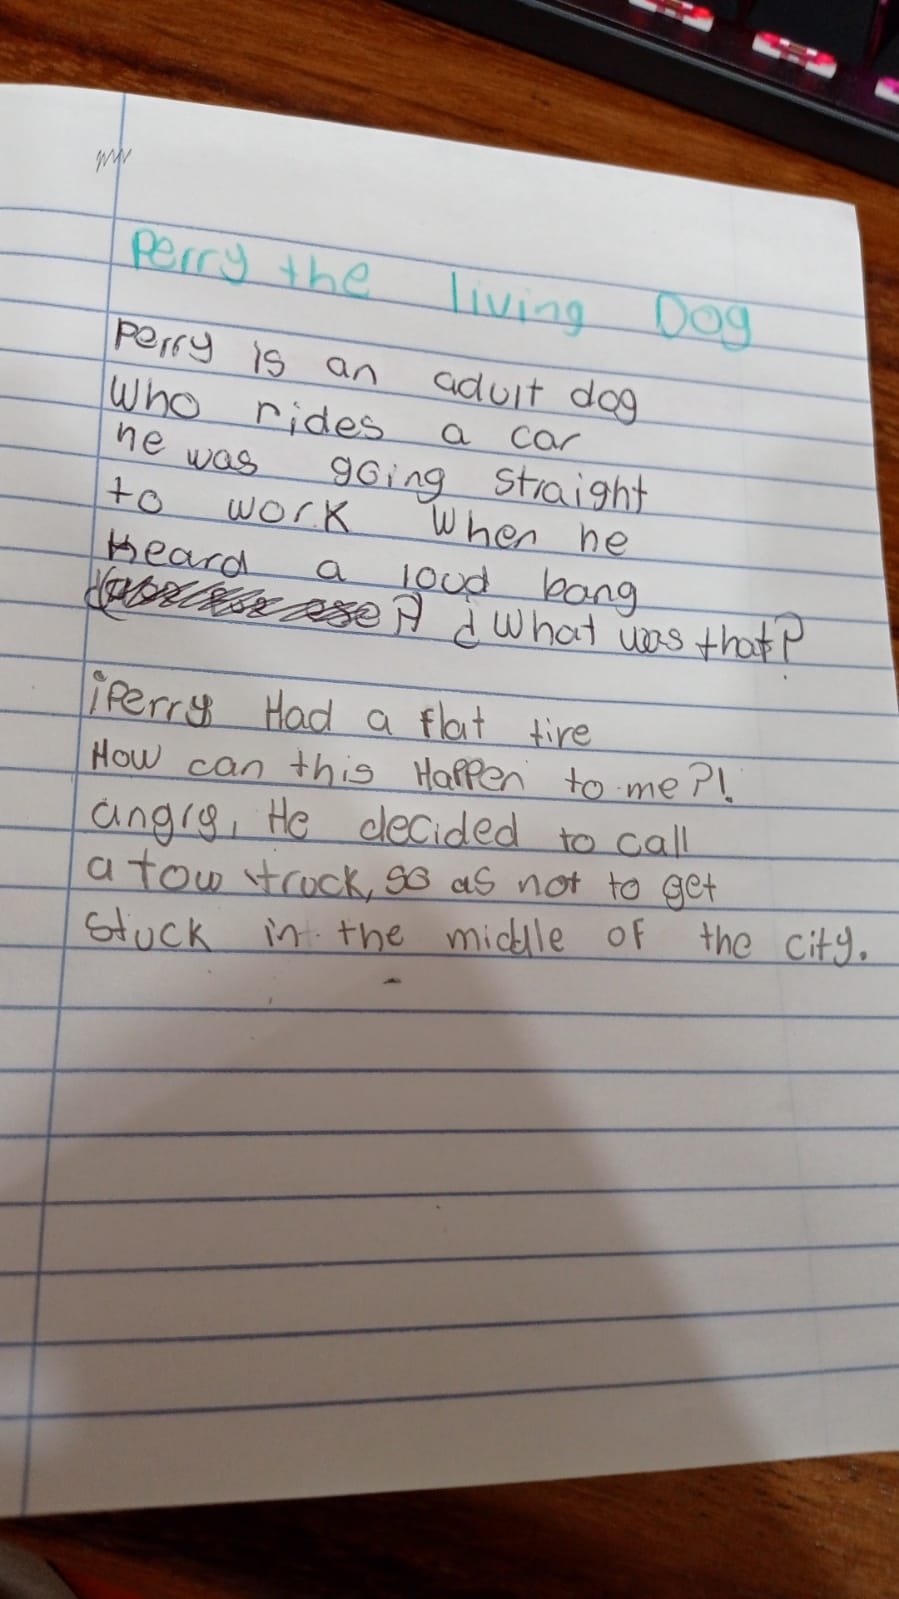 Perry the living Dog
Perry is an adult dog
Who rides a car
he was going straight
to work When he
Heard a loud bang
¿What was that?
¡Perry Had a flat tire
How can this Happen to me?!
angry, He decided to call
a tow truck, so as not to get
stuck in the middle of the city.